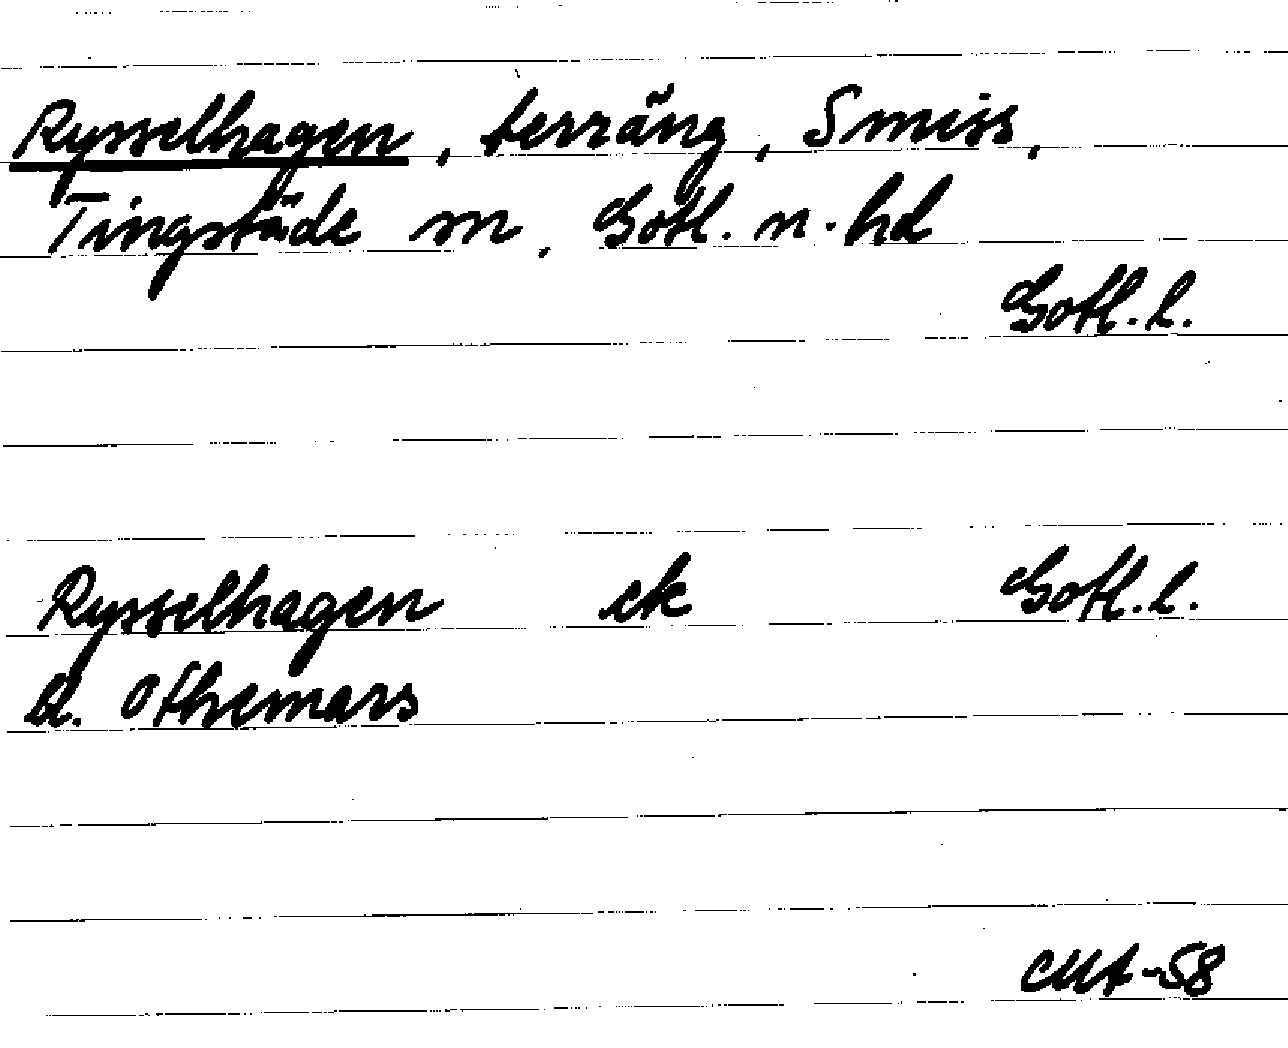 Rysselhagen, terräng, Smiss,
Tingstäde sn, Gotl. n. hd
Gotl. l.
Rysselhagen ek Gotl. l.
Othemars